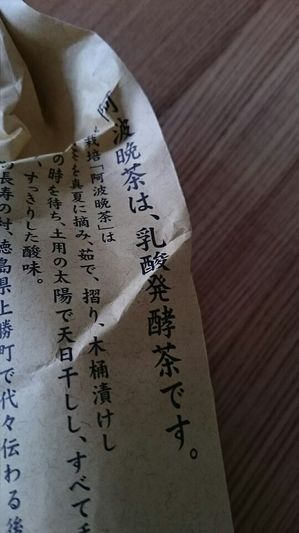 阿波晩茶は、乳酸発酵茶です。
栽培「阿波晩茶」は
を真夏に摘み、茹で、摺り、木桶漬けし
の時を待ち、土用の太陽で天日干しし、すべて手
、すっきりした酸味。
長寿の村、徳島県上勝町で代々伝わる後